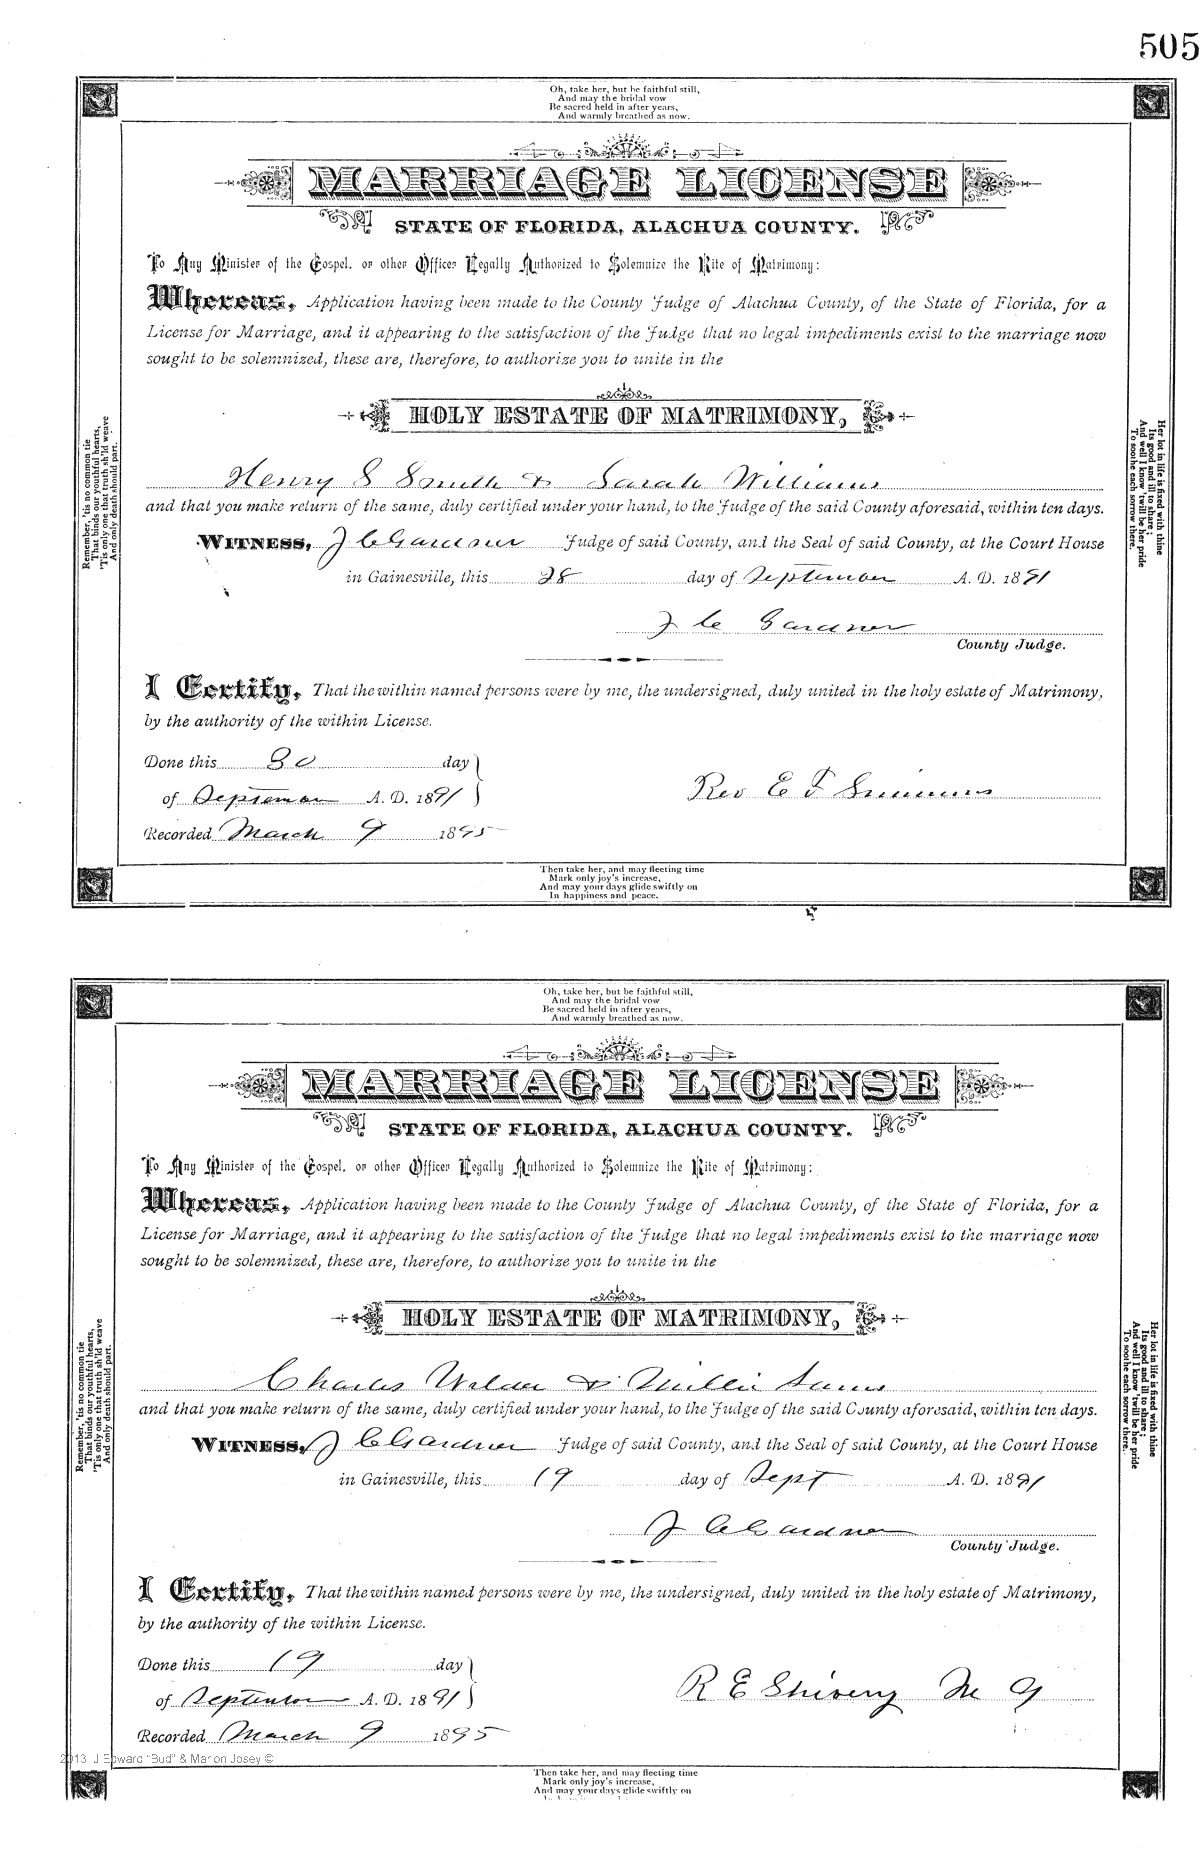 505
Oh, take her, but be faithful still,
And may the bridal vow
Be sacred held in after years,
And warmly breathed as now.
MARRIAGE LICENSE
STATE OF FLORIDA, ALACHUA COUNTY.
To Any Minister of the Gospel, or other Officer Legally Authorized to Solemnize the Rite of Matrimony:
Whereas, Application having been made to the County Judge of Alachua County, of the State of Florida, for a
License for Marriage, and it appearing to the satisfaction of the Judge that no legal impediments exist to the marriage now
sought to be solemnized, these are, therefore, to authorize you to unite in the
HOLY ESTATE OF MATRIMONY,
Henry S Smith & Sarah Williams
and that you make return of the same, duly certified under your hand, to the Judge of the said County aforesaid, within ten days.
WITNESS, J C Gardner Judge of said County, and the Seal of said County, at the Court House
in Gainesville, this 28 day of September A. D. 1891
J C Gardner
County Judge.
I Certify, That the within named persons were by me, the undersigned, duly united in the holy estate of Matrimony,
by the authority of the within License.
Done this 30 day
of September A. D. 1891
Rev E F Simmons
Recorded March 9 1895
Remember, 'tis no common tie
That binds our youthful hearts,
'Tis only one that truth sh'ld weave
And only death should part.
Her lot in life is fixed with thine
Its good and ill to share;
And well I know 'twill be her pride
To soothe each sorrow there.
Then take her, and may fleeting time
Mark only joy's increase,
And may your days glide swiftly on
In happiness and peace.
Oh, take her, but be faithful still,
And may the bridal vow
Be sacred held in after years,
And warmly breathed as now.
MARRIAGE LICENSE
STATE OF FLORIDA, ALACHUA COUNTY.
To Any Minister of the Gospel, or other Officer Legally Authorized to Solemnize the Rite of Matrimony:
Whereas, Application having been made to the County Judge of Alachua County, of the State of Florida, for a
License for Marriage, and it appearing to the satisfaction of the Judge that no legal impediments exist to the marriage now
sought to be solemnized, these are, therefore, to authorize you to unite in the
HOLY ESTATE OF MATRIMONY,
Charles Wilder & Millie Sams
and that you make return of the same, duly certified under your hand, to the Judge of the said County aforesaid, within ten days.
WITNESS, J C Gardner Judge of said County, and the Seal of said County, at the Court House
in Gainesville, this 19 day of Sept A. D. 1891
J C Gardner
County Judge.
I Certify, That the within named persons were by me, the undersigned, duly united in the holy estate of Matrimony,
by the authority of the within License.
Done this 19 day
of September A. D. 1891
R E Shivery M G
Recorded March 9 1895
Remember, 'tis no common tie
That binds our youthful hearts,
'Tis only one that truth sh'ld weave
And only death should part.
Her lot in life is fixed with thine
Its good and ill to share;
And well I know 'twill be her pride
To soothe each sorrow there.
2013 J Edward "Bud" & Marion Josey ©
Then take her, and may fleeting time
Mark only joy's increase,
And may your days glide swiftly on